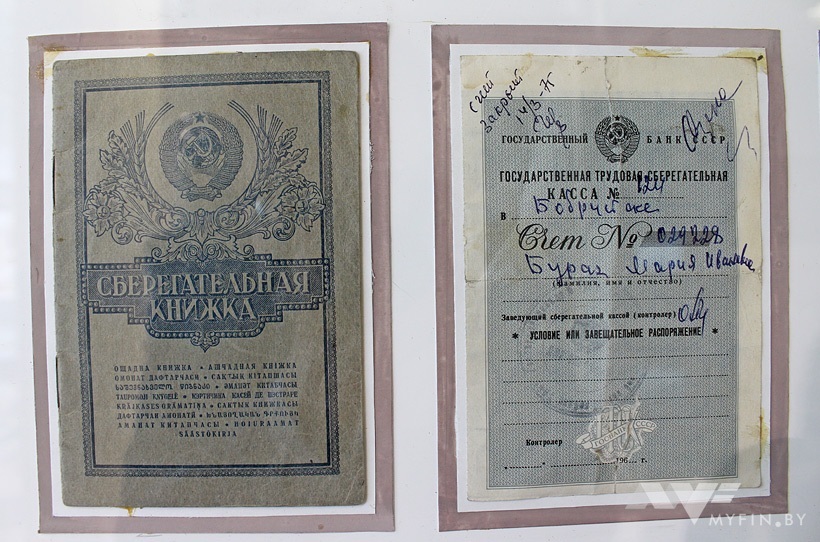 СБЕРЕГАТЕЛЬНАЯ
КНИЖКА
ОЩАДНА КНИЖКА • АШЧАДНАЯ КНІЖКА
ОМОНАТ ДАФТАРЧАСИ • САКТЫҚ КІТАПШАСЫ
ӘМАНӘТ КИТАБЧАСЫ
TAUPOMOJI KNYGELĖ • КАСЕЙ ДЕ ПЭСТРАРЕ
KRĀJKASES GRĀMATIŅA • САКТЫК КНИЖКАСЫ
ДАФТАРЧАИ АМОНАТӢ • ԽՆԱՅՈՂԱԿԱՆ ԳՐՔՈՒՅԿ
АМАНАТ КИТАПЧАСЫ • HOIURAAMAT
SÄÄSTÖKIRJA
счет
закрыт
ГОСУДАРСТВЕННЫЙ БАНК СССР
ГОСУДАРСТВЕННАЯ ТРУДОВАЯ СБЕРЕГАТЕЛЬНАЯ
КАССА №
В Бобруйске
Счет № 029728
Мария Ивановна
(фамилия, имя и отчество)
Заведующий сберегательной кассой (контролер)
* УСЛОВИЕ ИЛИ ЗАВЕЩАТЕЛЬНОЕ РАСПОРЯЖЕНИЕ *
ГОСБАНК СССР
Контролер
„ “ 196 г.
MYFIN.BY